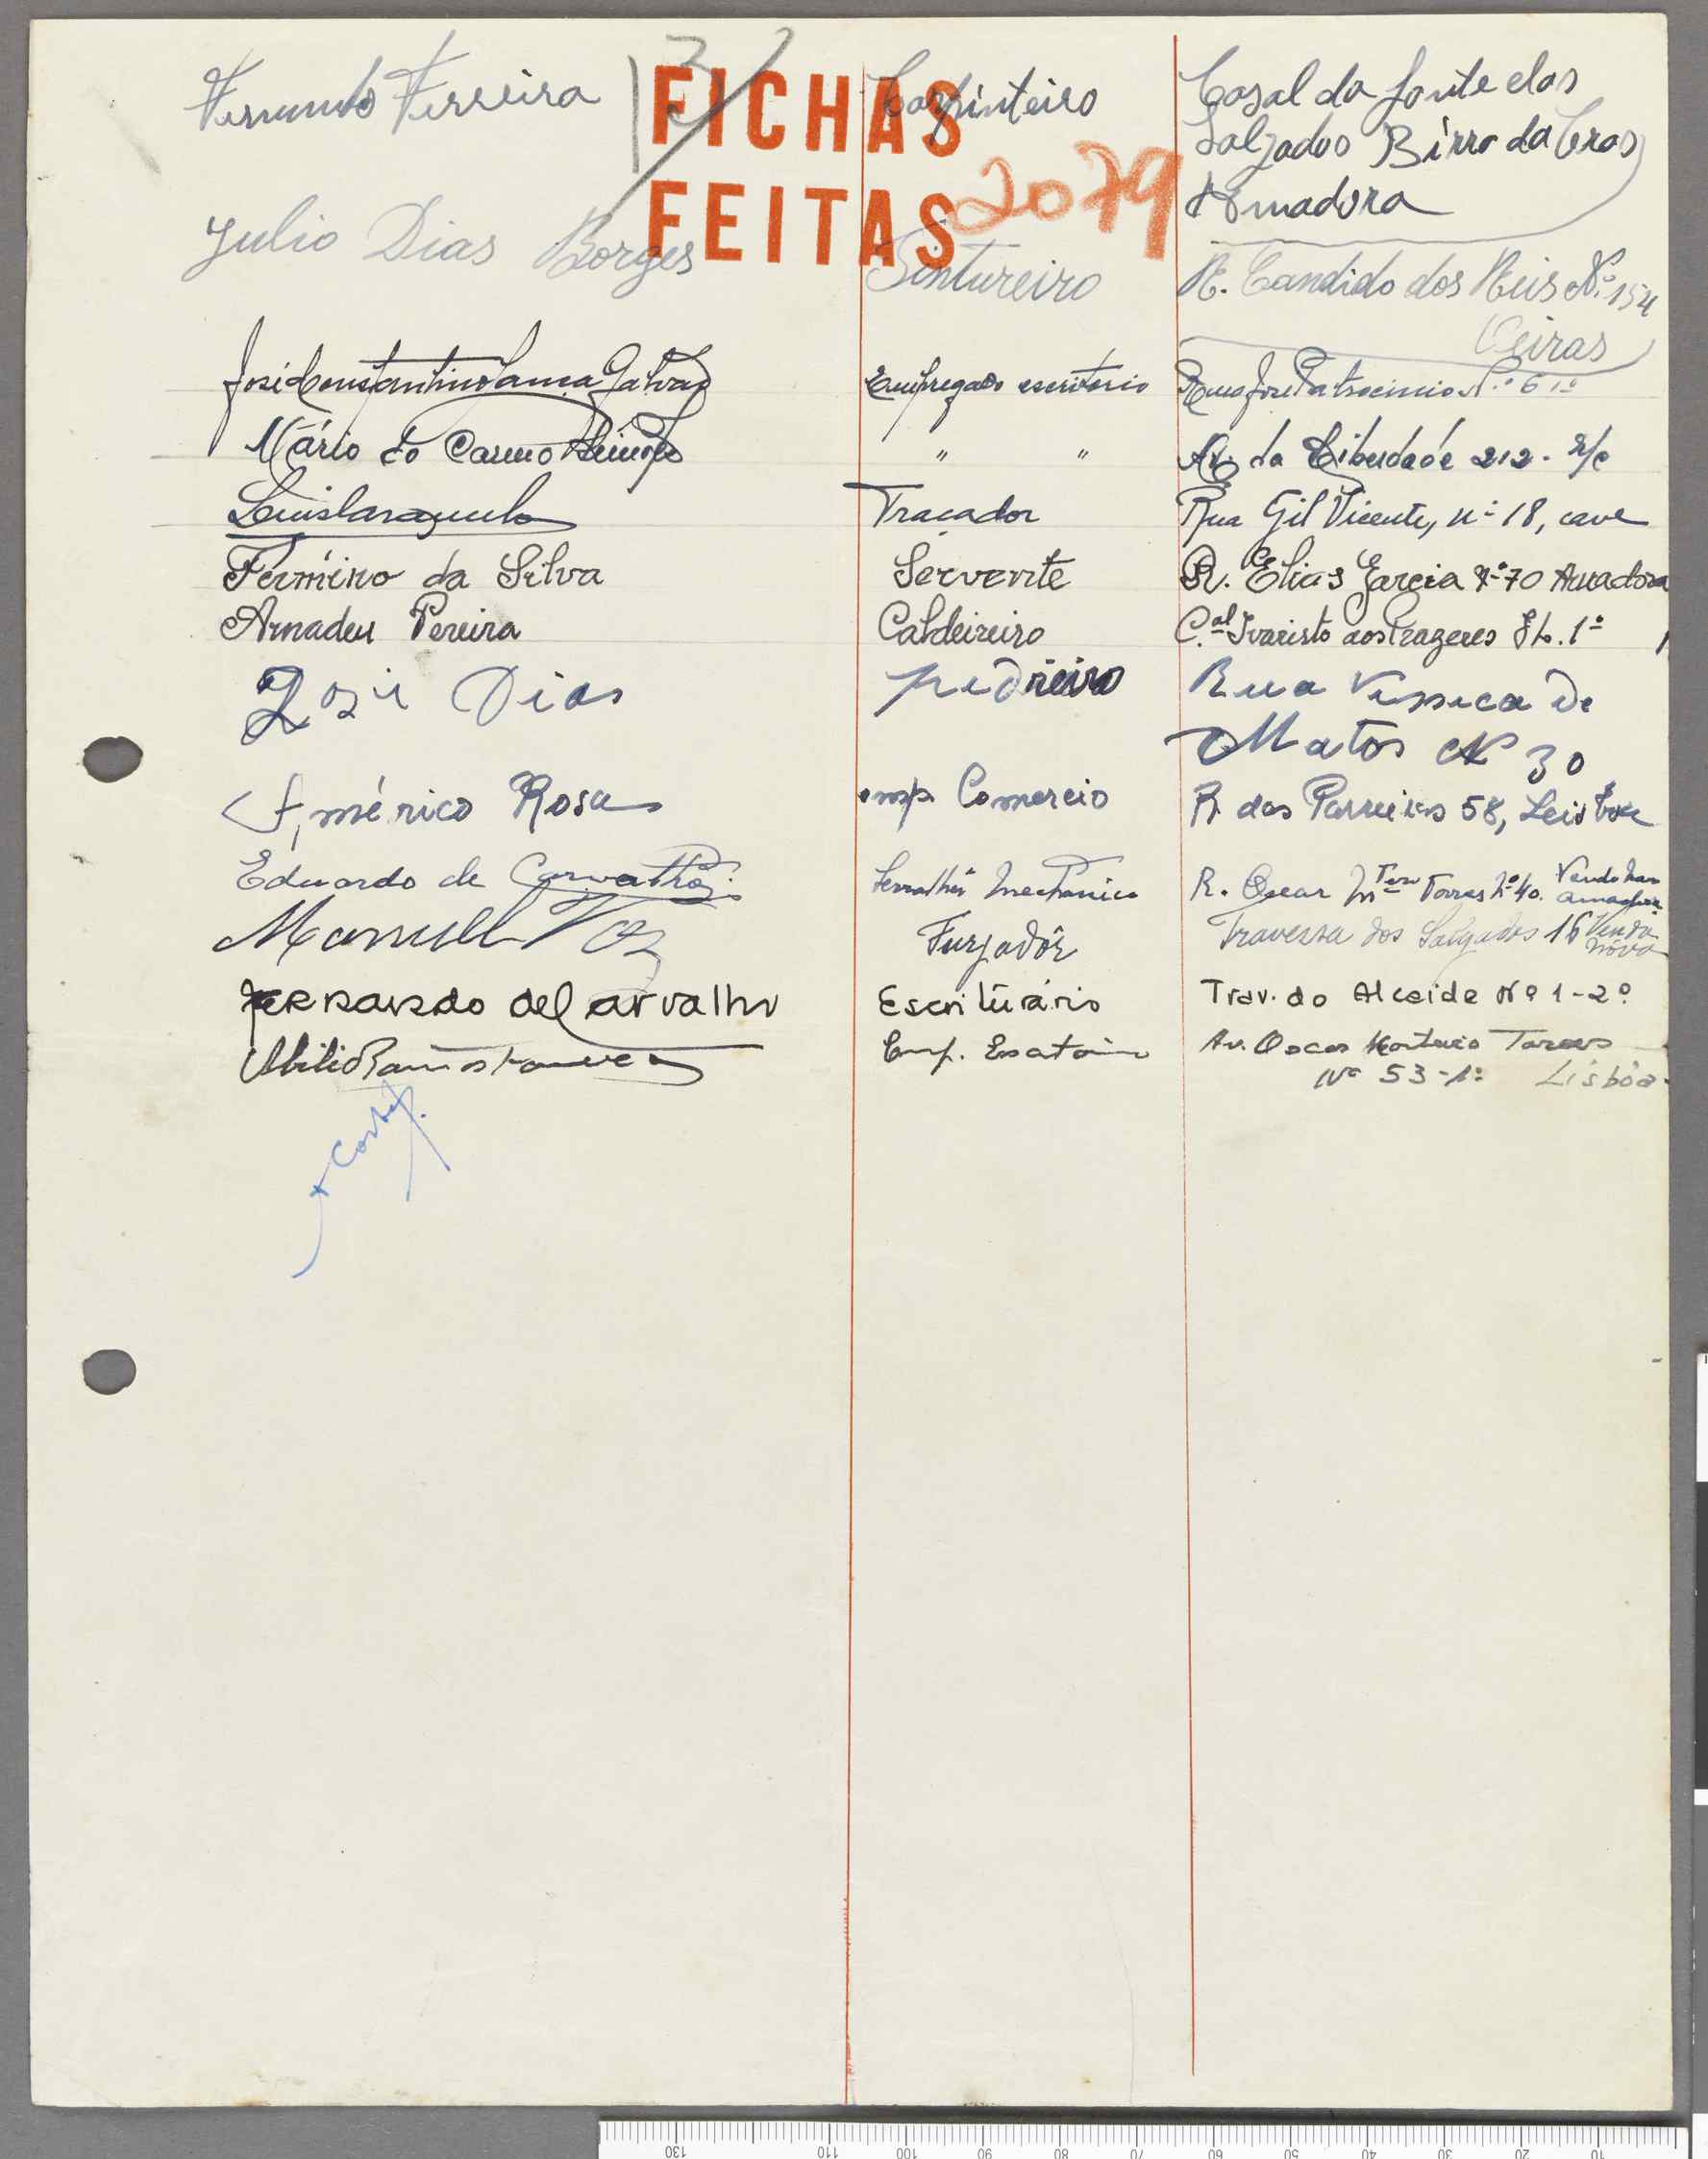 Fernando Ferreira Carpinteiro Casal da fonte dos
Salgados Birro da Cros
Amadora
37
FICHAS
FEITAS
2079
Julio Dias Borges Sintureiro R. Candido dos Reis Nº 154
Oeiras
José Constantino Lama Galvão Empregado escritório Rua José Patrocinio Nº 6 1º
Mário do Carmo " " Av. da Liberdade 212 - r/c
Luis Traçador Rua Gil Vicente, nº 18, cave
Fermino da Silva Servente R. Elias Garcia Nº 70 Amadora
Amadeu Pereira Caldeireiro C.al Ivaristo aos Prazeres 1º
José Dias pedreiro Rua de
Matos Nº 30
Américo Rosa emp. Comercio R. das Parreiras 58, Leisboa
Eduardo de Carvalho Serralhr Mechanico R. Oscar Mteiro Torres Nº 40. Venda Nova
Amadora
Manuell Vaz Furjadôr Travessa dos Salgados 16 Venda
Nova
Fernando de Carvalho Escriturário Trav. do Alcaide Nº 1-2º
Abilio Ramos Fonseca Emp. Escritório Av. Oscar Monteiro Torres
Nº 53-1º Lisbôa